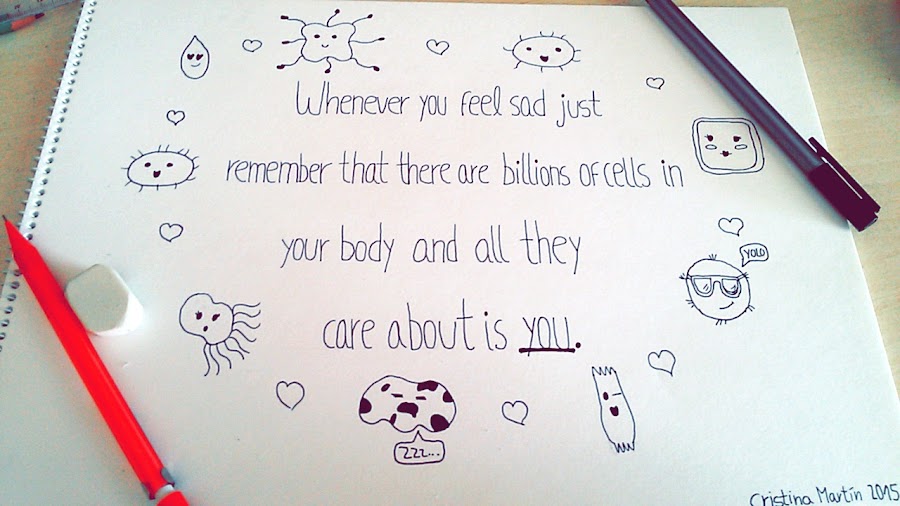 Whenever you feel sad just
remember that there are billions of cells in
your body and all they
YOLO
care about is you.
zzz...
Cristina Martín 2015